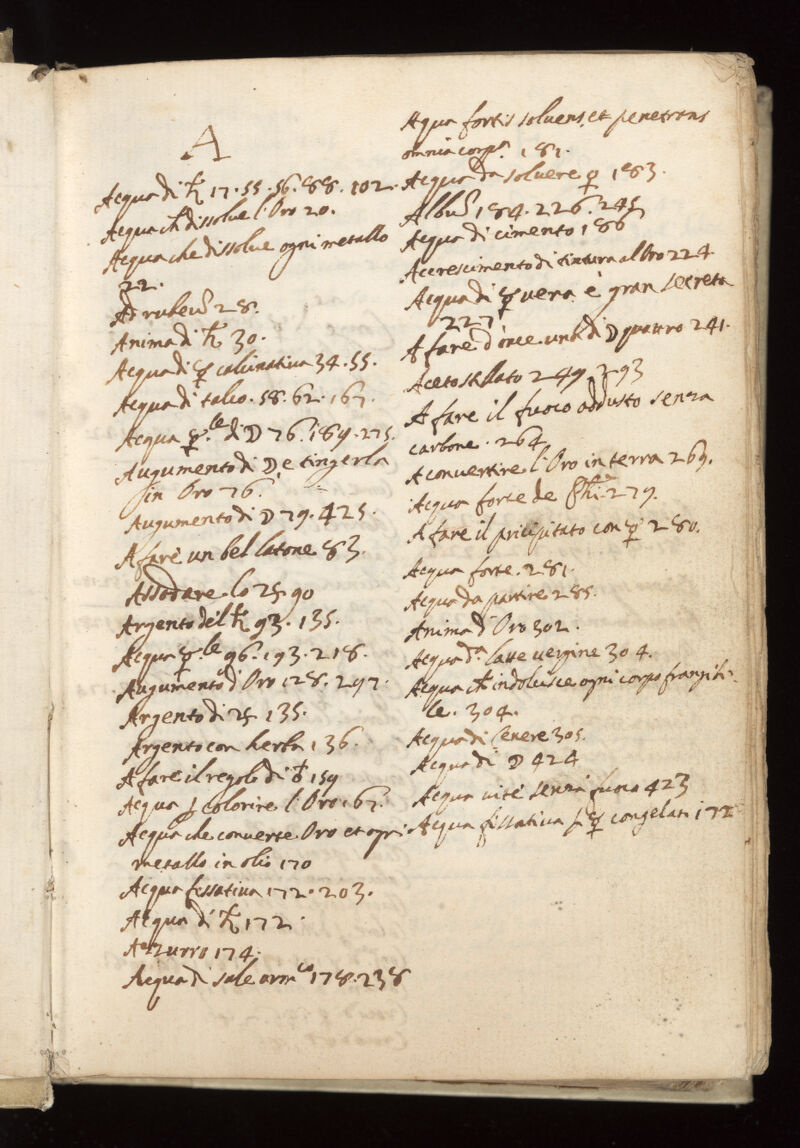 A
Acqua di ♄ 17. 55. 56. 88. 102.
Acqua ch dissolve l'Oro 20.
Acqua che dissolve ogni metallo
22.
Ad rubeũ 28.
Anima di ♄ 30.
Acqua di ☿ calcinativa 34. 55.
Acqua di talco. 58. 62. 167.
Acqua ☿.le di ☽ 76. 189. 275.
Augumento di ☽ e tingerla
in Oro 76.
Augumento di ☽ 79. 425.
A fare un bel latone 83.
Assodare lo ♃ 90
Argento del ♄ 93. 135.
Acqua ☿.le 96. 193. 218.
Augumento d'Oro 128. 297.
Argento di ♃ 135.
Argento con herba 136.
A fare il regolo di ♁ 159
Acqua p colorire l'Oro 167.
Acqua che converte Oro et ogni
metallo in olio 170
Acqua fissativa 172. 203.
Acqua di ♄ 172.
Azzurro 174.
Acqua di sale arm.co 178. 238
Aqua fortis solvens, et penetrans
omnia corp.a 181.
Acqua da solvere ☿ 183.
Albũ 184. 226. 245
Acqua di cimento 186
Accrescimento di tintura al Oro 224
Acqua di ☿ vera è gran secreta
227
A fare d'once una di ☽ quattro 241.
Aceto stillato 249. 293
A fare il fuoco adusto senza
carbone. 264
A convertire l'Oro in terra 269.
Acqua forte de Phi. 279.
A fare il pricipitato con ☿ 280.
Acqua forte. 281.
Acqua da partire 285.
Anima d'Oro 302.
Acqua d.a latte vergine 304.
Acqua ch indolcisce ogni corpo frangibi-
le. 304.
Acqua di Cenere 305.
Acqua di ☽ 424
Acqua vite senza fuoco 423
Acqua fissativa p ☿ congelati 172